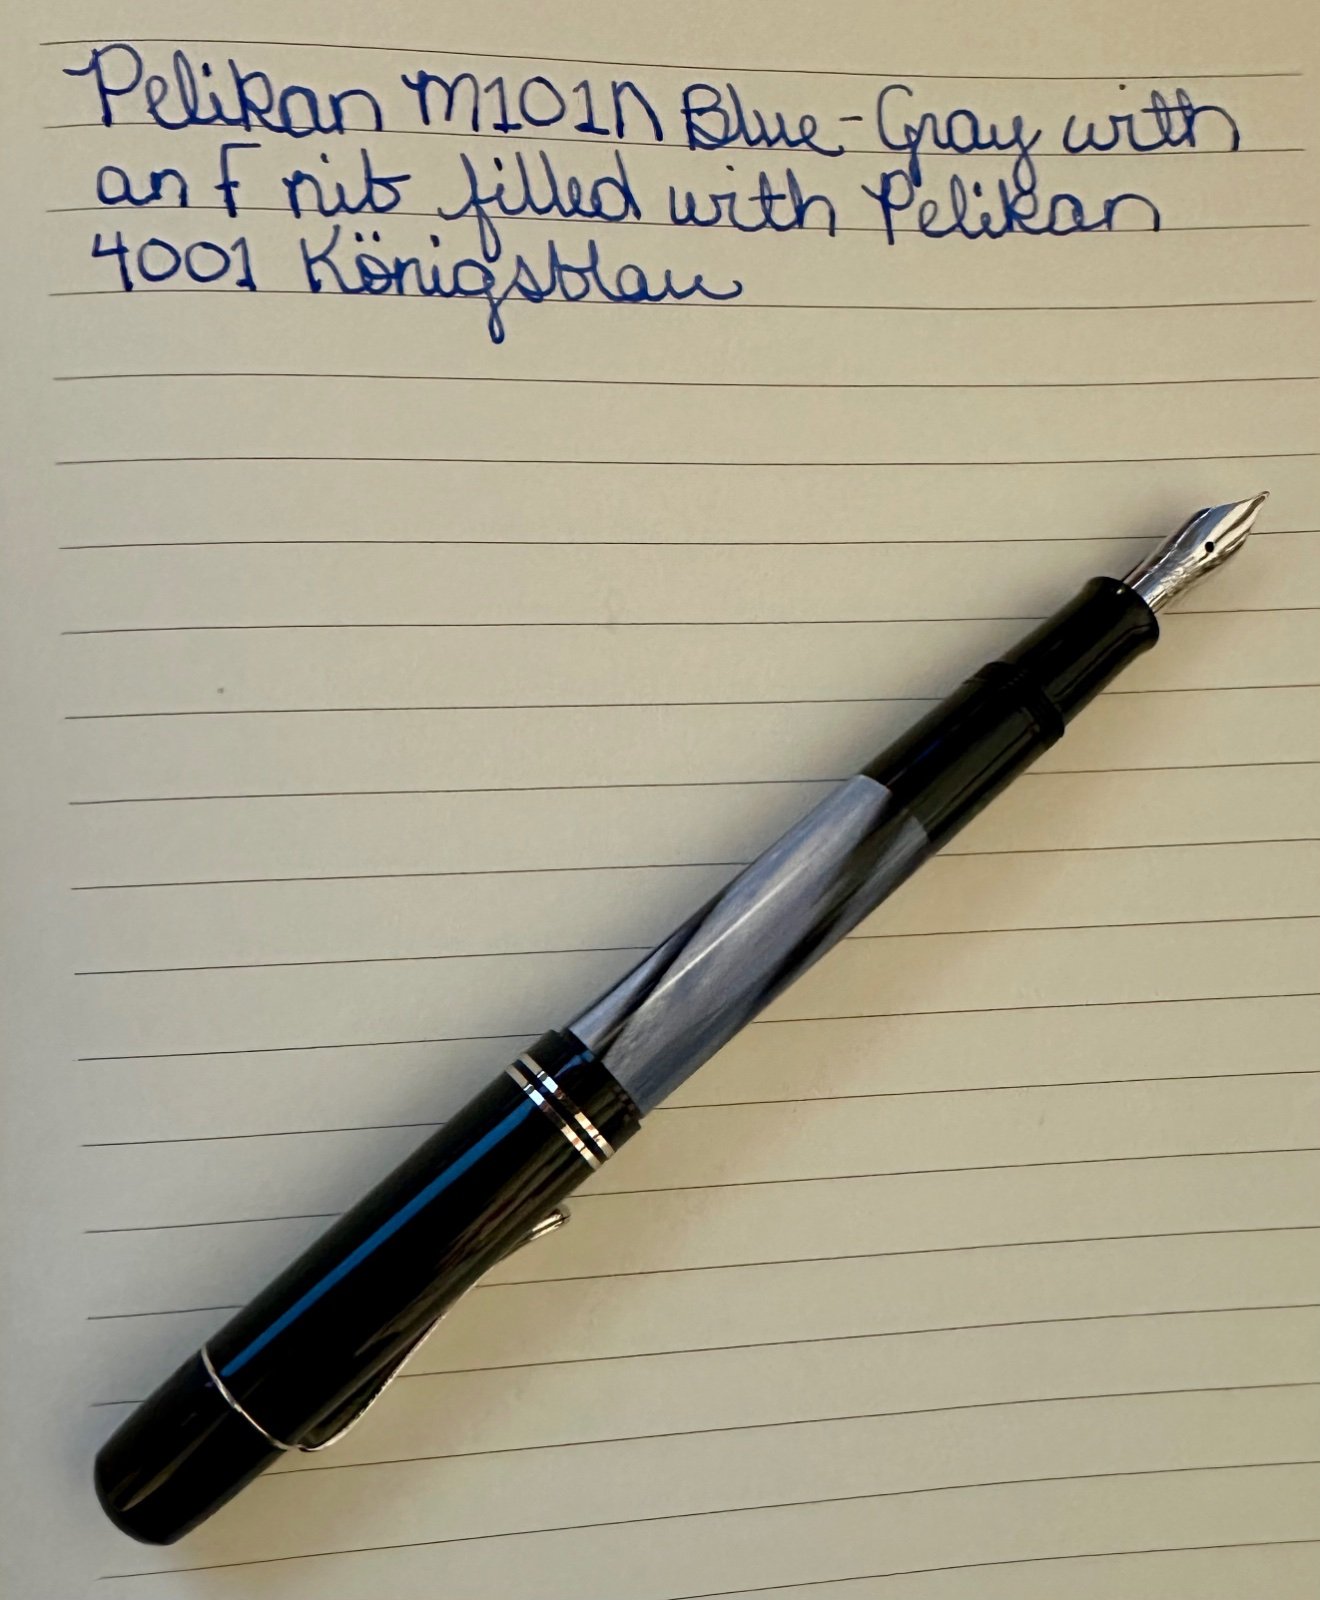 Pelikan M101N Blue-Gray with
an F nib filled with Pelikan
4001 Königsblau